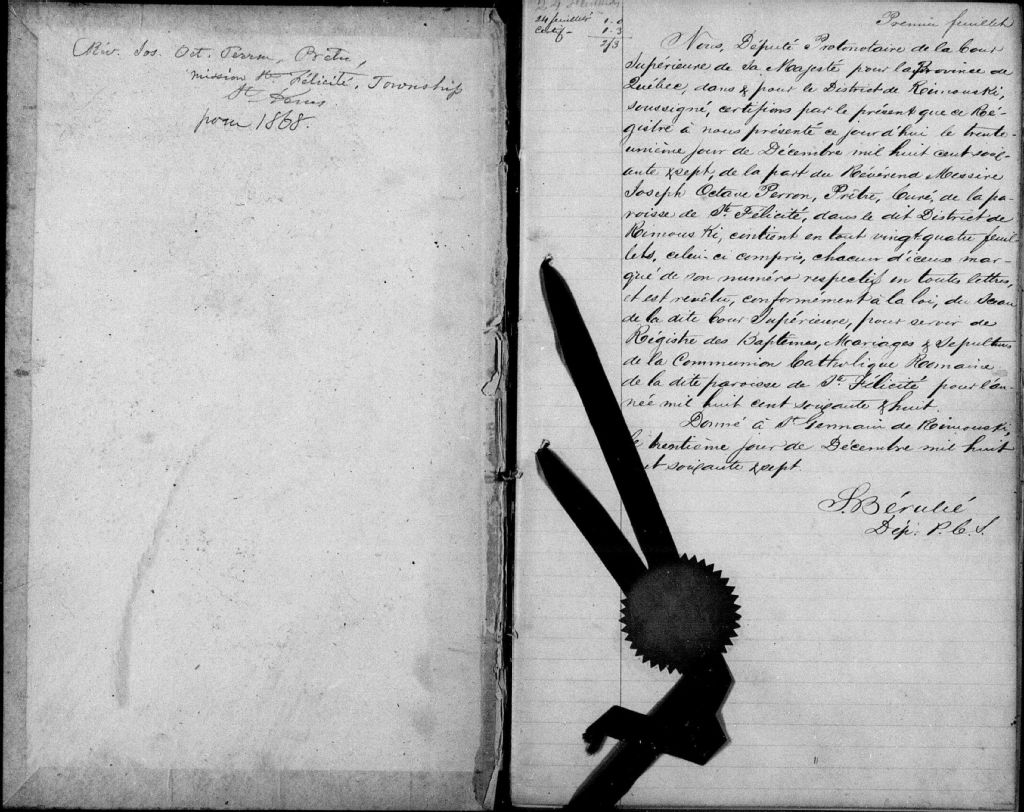 Rév. Jos. Oct. Perron, Ptre,
mission Ste Félicité, Township
St Denis
pour 1868.
24 feuillets
24 feuillets 1.0
Certif - 1.3
2/3
Premier feuillet
Nous, Député Protonotaire de la Cour
Supérieure de Sa Majesté pour la Province de
Québec, dans & pour le District de Rimouski,
soussigné, certifions par le présent que ce Ré-
gistre à nous présenté ce jourd'hui le trente-
unième jour de Décembre mil huit cent soix-
ante & sept, de la part du Révérend Messire
Joseph Octave Perron, Prêtre, Curé, de la pa-
roisse de Ste Félicité, dans le dit District de
Rimouski, contient en tout vingt quatre feuil-
lets, celui-ci compris, chacun d'iceux mar-
qué de son numéro respectif en toutes lettres,
et est revêtu, conformément à la loi, du Sceau
de la dite Cour Supérieure, pour servir de
Régistre des Baptêmes, Mariages & Sépultures
de la Communion Catholique Romaine
de la dite paroisse de Ste Félicité pour l'an-
née mil huit cent soixante & huit.
Donné à St Germain de Rimouski,
le trentième jour de Décembre mil huit
t soixante & sept.
Dép. P.C.S.